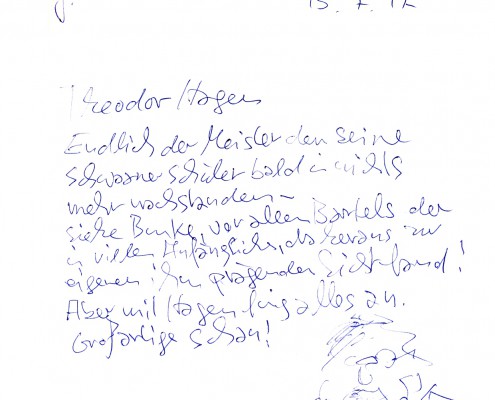 15. 7. 17
Theodor Hagen
Endlich der Meister den seine
Schwaaner Schüler bald in nichts
mehr nachstanden –
siehe Bunke, vor allem Bartels der
in vielen Anfänglich, als heraus zur
eigenen ihm prägenden Sicht fand!
Aber mit Hagen fing alles an.
Großartige Schau!